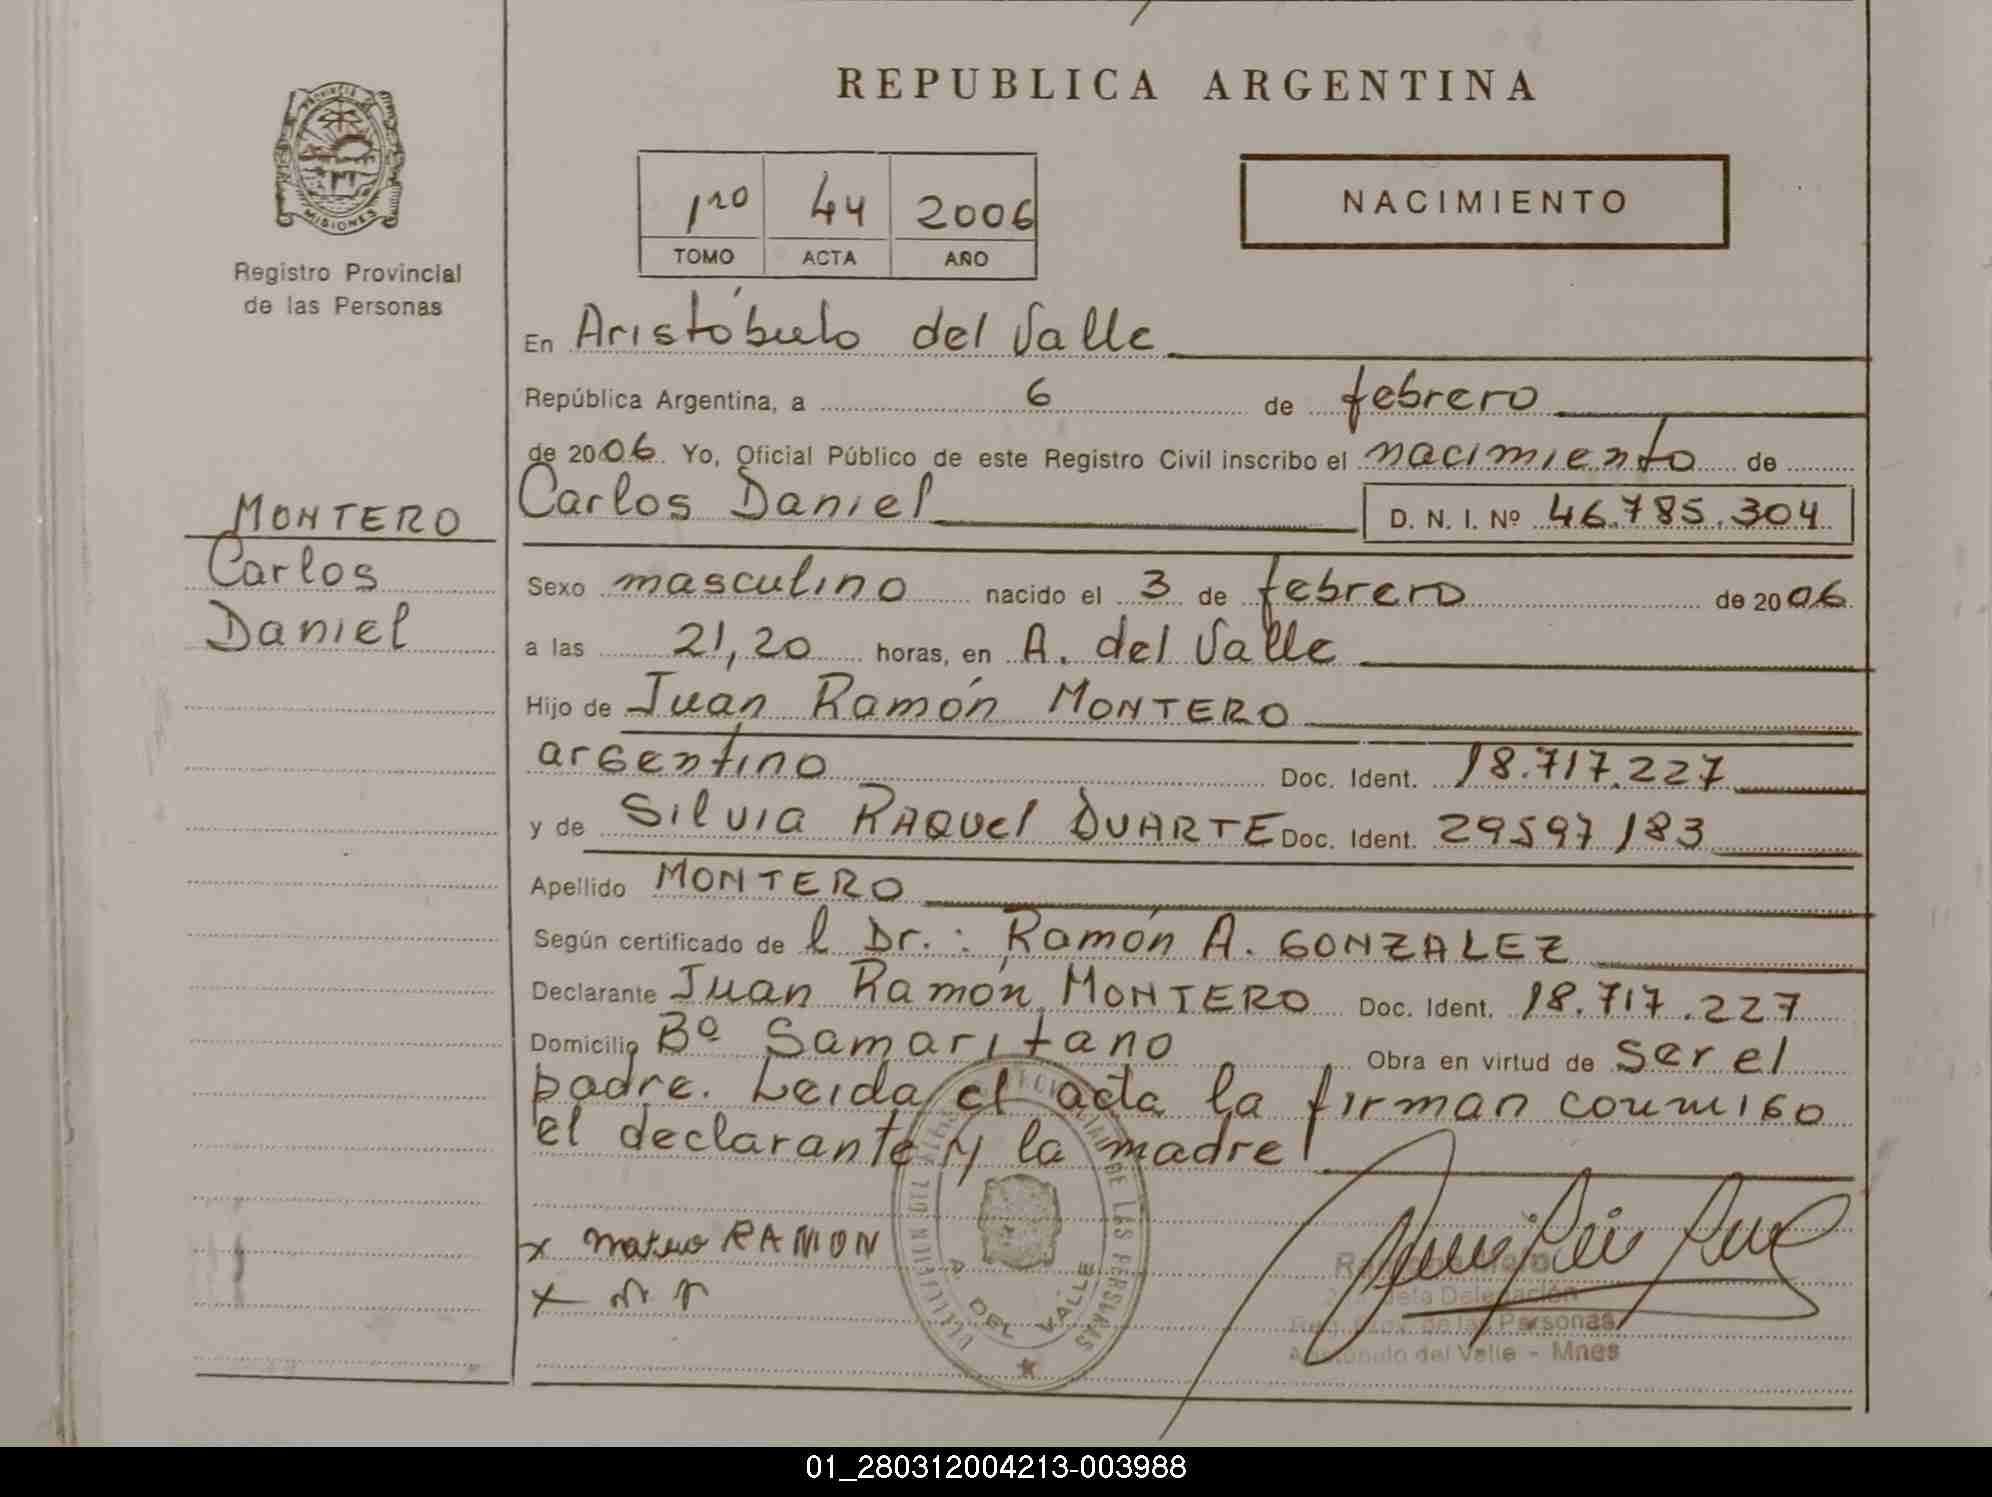 REPUBLICA ARGENTINA
PROVINCIA DE
MISIONES
Registro Provincial
de las Personas
1ro 44 2006
TOMO ACTA AÑO
NACIMIENTO
En Aristóbulo del Valle
República Argentina, a 6 de febrero
de 2006. Yo, Oficial Público de este Registro Civil inscribo el nacimiento de
Carlos Daniel D. N. I. Nº 46.785.304
MONTERO
Carlos
Daniel
Sexo masculino nacido el 3 de febrero de 2006
a las 21,20 horas, en A. del Valle
Hijo de Juan Ramón MONTERO
argentino Doc. Ident. 18.717.227
y de Silvia RAQUEl DUARTE Doc. Ident. 29597183
Apellido MONTERO
Según certificado de l Dr.: Ramón A. GONZALEZ
Declarante Juan Ramón MONTERO Doc. Ident. 18.717.227
Domicilio Bº Samaritano Obra en virtud de ser el
padre. Leida el acta la firman conmigo
el declarante y la madre
x RAMON
x
DE LAS PERSONAS
A. DEL VALLE
Jefa Delegación
Reg. Prov. de las Personas
Aristóbulo del Valle - Mnes
01_280312004213-003988